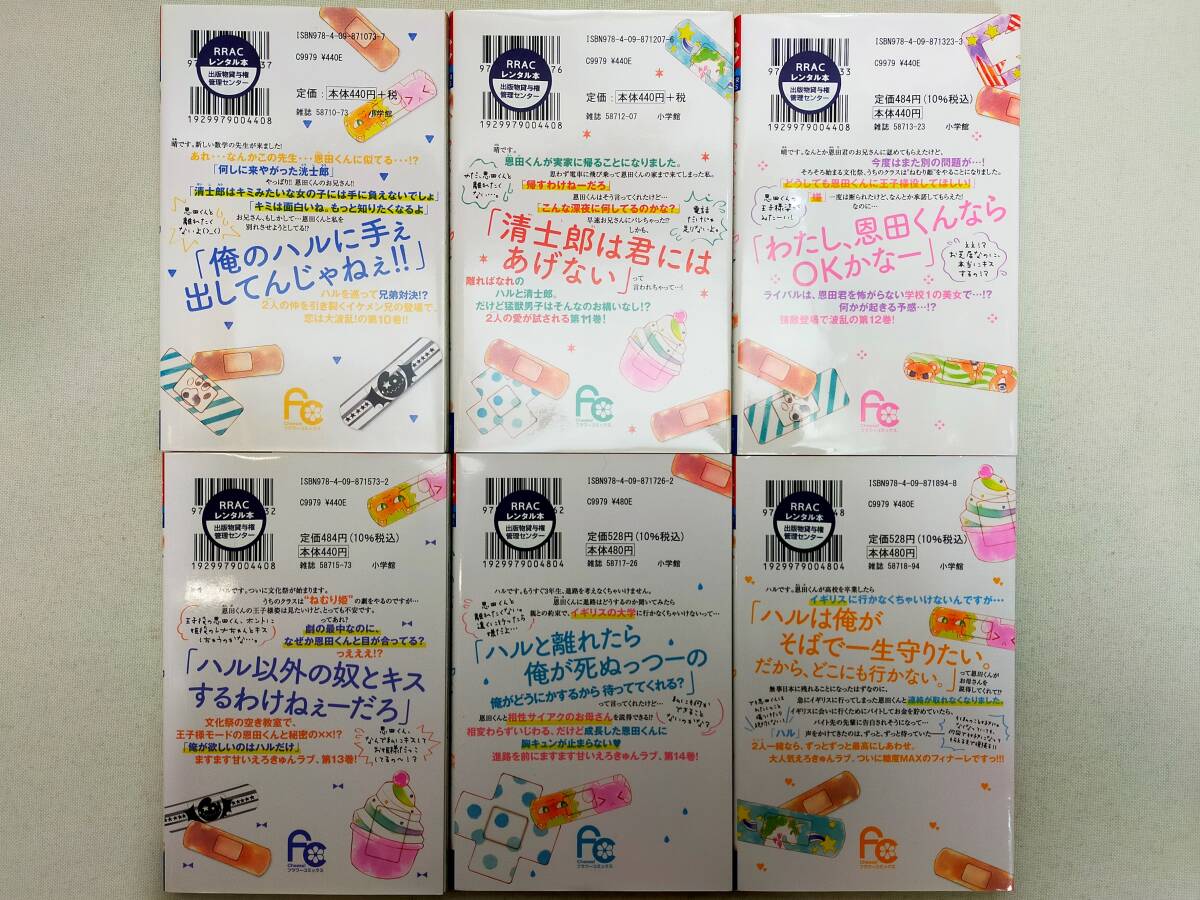 ISBN978-4-09-871073-7
C9979 ¥440E
RRAC
レンタル本
出版物貸与権
管理センター
定価：本体440円+税
1929979004408
雑誌 58710-73
小学館
晴です。新しい数学の先生が来ました!
あれ・・・なんかこの先生・・・恩田くんに似てる・・・!?
「何しに来やがった洸士郎」
やっぱり!! 恩田くんのお兄さん!!
「清士郎はキミみたいな女の子には手に負えないでしょ」
「キミは面白いね。もっと知りたくなるよ」
お兄さん、もしかして…恩田くんと私を
別れさせようとしてる!?
恩田くんと
離れたく
ないよ(>_<)
「俺のハルに手ぇ
出してんじゃねぇ!!」
ハルを巡って兄弟対決!?
2人の仲を引き裂くイケメン兄の登場で、
恋は大波乱!の第10巻!!
Cheese!
フラワーコミックス
ISBN978-4-09-871207-6
C9979 ¥440E
RRAC
レンタル本
出版物貸与権
管理センター
定価：本体440円+税
1929979004408
雑誌 58712-07
小学館
晴です。
恩田くんが実家に帰ることになりました。
思わず電車に飛び乗って恩田くんの家まで来てしまった私。
「帰すわけねーだろ」
恩田くんはそう言ってくれたけど…
「こんな深夜に何してるのかな?」
早速お兄さんにバレちゃった!?
しかも、
やだ、恩田くんと
離れたくない
電話
だけじゃ
足りないよ。
「清士郎は君には
あげない」
って
言われちゃって…!
離ればなれの
ハルと清士郎。
だけど猛獣男子はそんなのお構いなし!?
2人の愛が試される第11巻!
Cheese!
フラワーコミックス
ISBN978-4-09-871323-3
C9979 ¥440E
RRAC
レンタル本
出版物貸与権
管理センター
定価484円(10%税込)
本体440円
1929979004408
雑誌 58713-23
小学館
晴です。なんとか恩田君のお兄さんに認めてもらえたけど、
今度はまた別の問題が…!
そろそろ始まる文化祭、うちのクラスは“ねむり姫”をやることになりました。
「どうしても恩田くんに王子様役してほしい!」
「嫌」
一度は断られたけど、なんとか承諾してもらえた!
なのに…
恩田くんの
王子様姿
みたーい!
「わたし、恩田くんなら
OKかなー」
ええ!?
お芝居なのに…
本当にキス
するの!?
ライバルは、恩田君を怖がらない学校1の美女で…!?
何かが起きる予感…!?
強敵登場で波乱の第12巻!
Cheese!
フラワーコミックス
ISBN978-4-09-871573-2
C9979 ¥440E
RRAC
レンタル本
出版物貸与権
管理センター
定価484円(10%税込)
本体440円
1929979004408
雑誌 58715-73
小学館
ハルです。ついに文化祭が始まります。
うちのクラスは“ねむり姫”の劇をやるのですが…
恩田くんの王子様姿は見たいけど、とっても不安です。
ってあれ?
劇の最中なのに、
なぜか恩田くんと目が合ってる?
っえええ!?
「ハル以外の奴とキス
するわけねぇーだろ」
文化祭の空き教室で、
王子様モードの恩田くんと秘密の××!?
「俺が欲しいのはハルだけ」
ますます甘いえろきゅんラブ、第13巻!
Cheese!
フラワーコミックス
ISBN978-4-09-871726-2
C9979 ¥480E
RRAC
レンタル本
出版物貸与権
管理センター
定価528円(10%税込)
本体480円
1929979004804
雑誌 58717-26
小学館
ハルです。もうすぐ3年生、進路を考えなくちゃいけません。
恩田くんに進路はどうするのか聞いてみたら
親との約束で、イギリスの大学に行かなくちゃいけないって…
「ハルと離れたら
俺が死ぬっつーの
俺がどうにかするから 待っててくれる?」
って言ってくれたけど…
恩田くんと相性サイアクのお母さんを説得できる!?
相変わらずいじわる、だけど成長した恩田くんに
胸キュンが止まらない♥
進路を前にますます甘いえろきゅんラブ、第14巻!
Cheese!
フラワーコミックス
ISBN978-4-09-871894-8
C9979 ¥480E
RRAC
レンタル本
出版物貸与権
管理センター
定価528円(10%税込)
本体480円
1929979004804
雑誌 58718-94
小学館
ハルです。恩田くんが高校を卒業したら
イギリスに行かなくちゃいけないんですが…
「ハルは俺が
そばで一生守りたい。
だから、どこにも行かない。」
って恩田くんが
お母さんを
説得してくれて!?
無事日本に残れることになったはずなのに、
急にイギリスに行ってしまった恩田くんと連絡が取れなくなりました。
イギリスに会いに行くためにバイトしてお金を貯めていたら、
バイト先の先輩に告白されそうになって…
「ハル」 声をかけてきたのは、ずっと、ずっと待っていた
2人一緒なら、ずっとずっと最高にしあわせ。
大人気えろきゅんラブ、ついに糖度MAXのフィナーレですっ!!!
Cheese!
フラワーコミックス